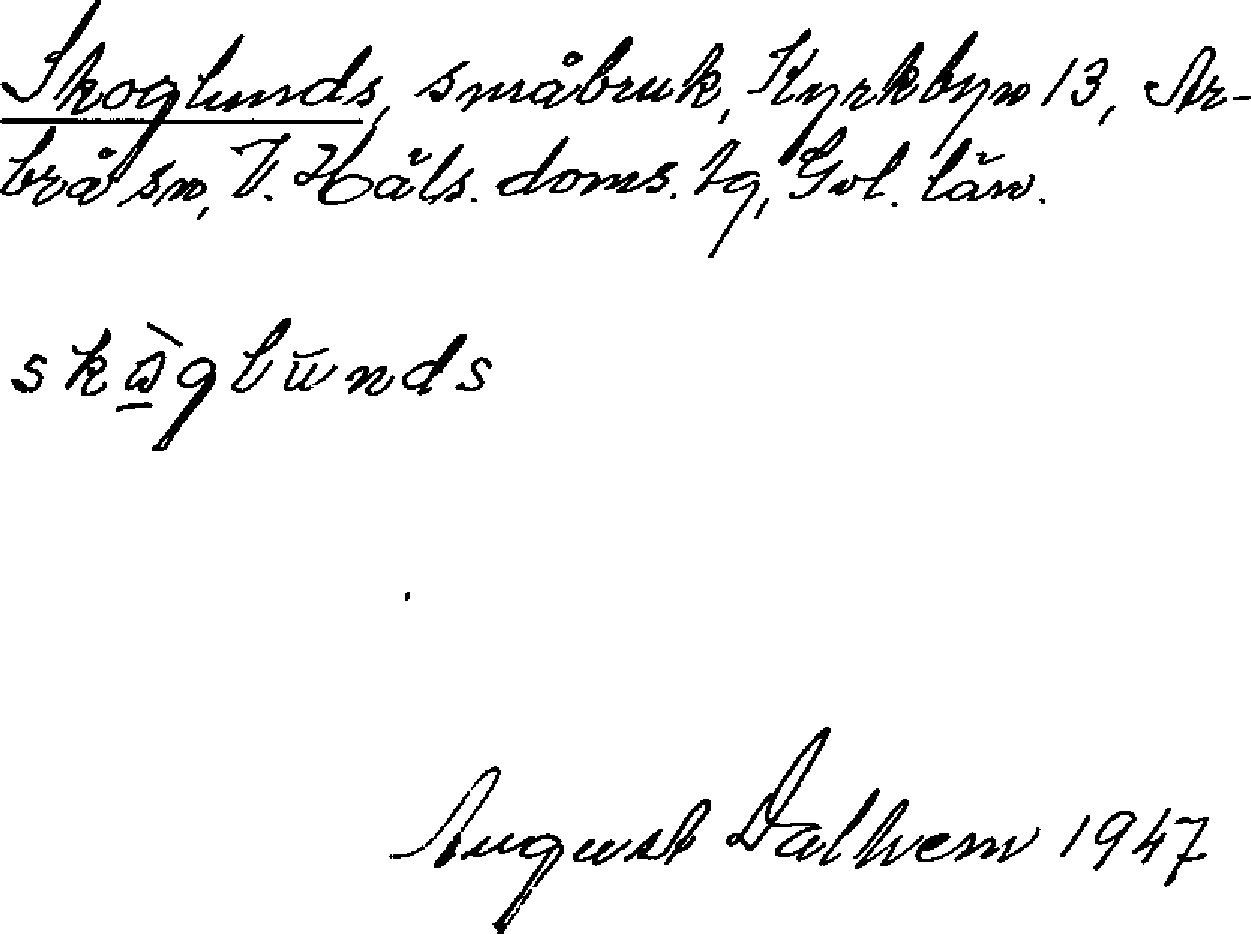 Skoglunds, småbruk, Kyrkbyn 13, Ar-
brå sn, V. Häls. doms. tg, Gvl. län.
skòglŭnds
August Dalhem 1947